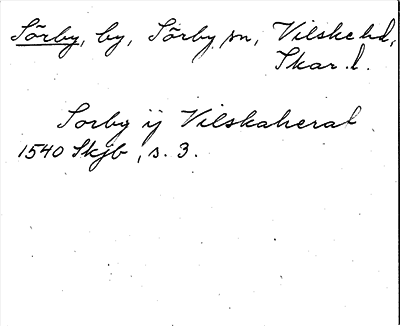 Sörby, by, Sörby sn, Vilske hd,
Skar. l.
Sorby ij Vilskaherat
1540 Skjb, s. 3.